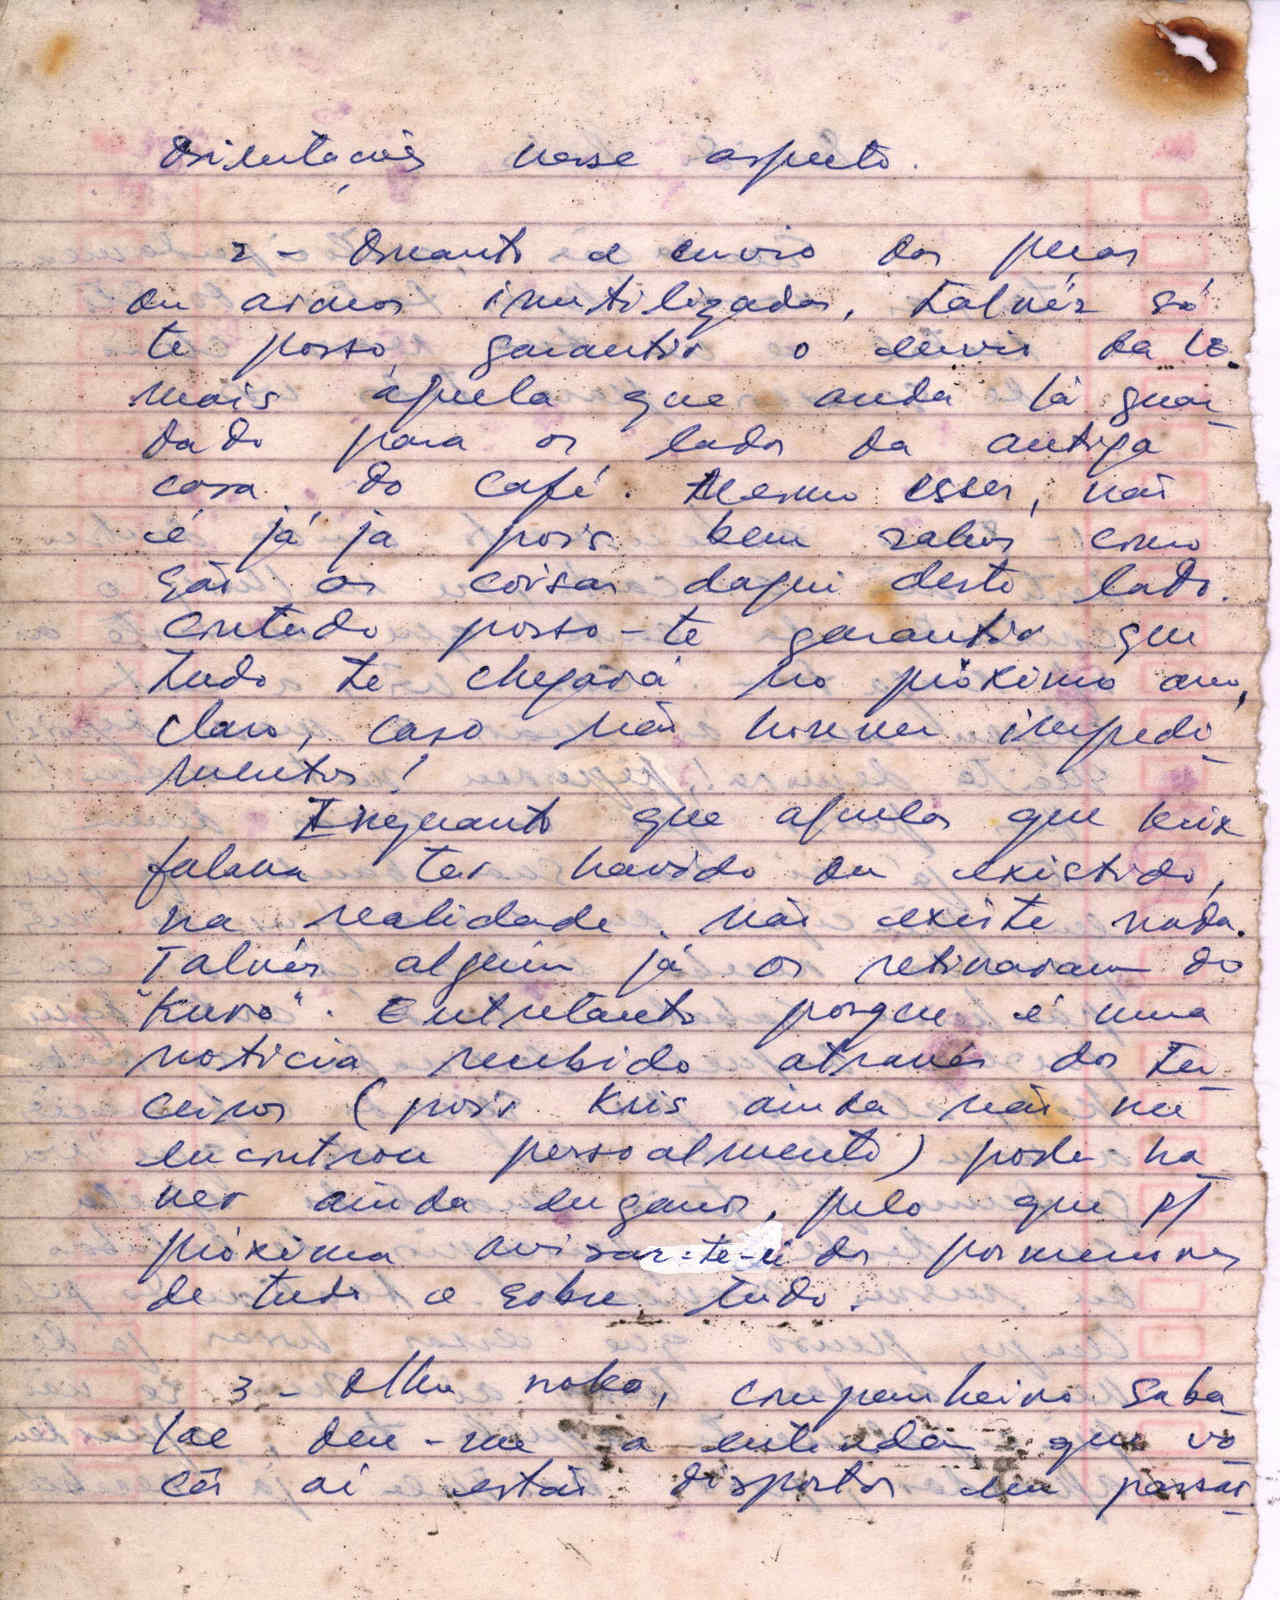 Orientações nesse aspecto.
2 - Quanto a envio das peças
ou armas inutilizadas, talvéz só
te posso garantir o envio da
mais aquela que anda lá guar-
dado para os lados da antiga
casa do café. Mesmo esses, não
é já já pois bem sabes como
são as coisas daqui deste lado.
Contudo posso-te garantir que
tudo te chegará no próximo ano,
claro, caso não houver impedi-
mentos!
Enquanto que aquelas que
falava ter havido ou existido,
na realidade não existe nada.
Talvés alguém já os retiraram do
"Kuro". Entretanto porque é uma
noticia recebido através dos ter-
ceiros (pois Kris ainda não me
encontrou pessoalmente) pode ha-
ver ainda enganos, pelo que p/
próxima avisar-te-ei dos pormenores
de tudo e sobre tudo.
3 - Olha noko, companheiro Saba-
lae deu-me a entender que vo-
cês aí estão dispostos em passar